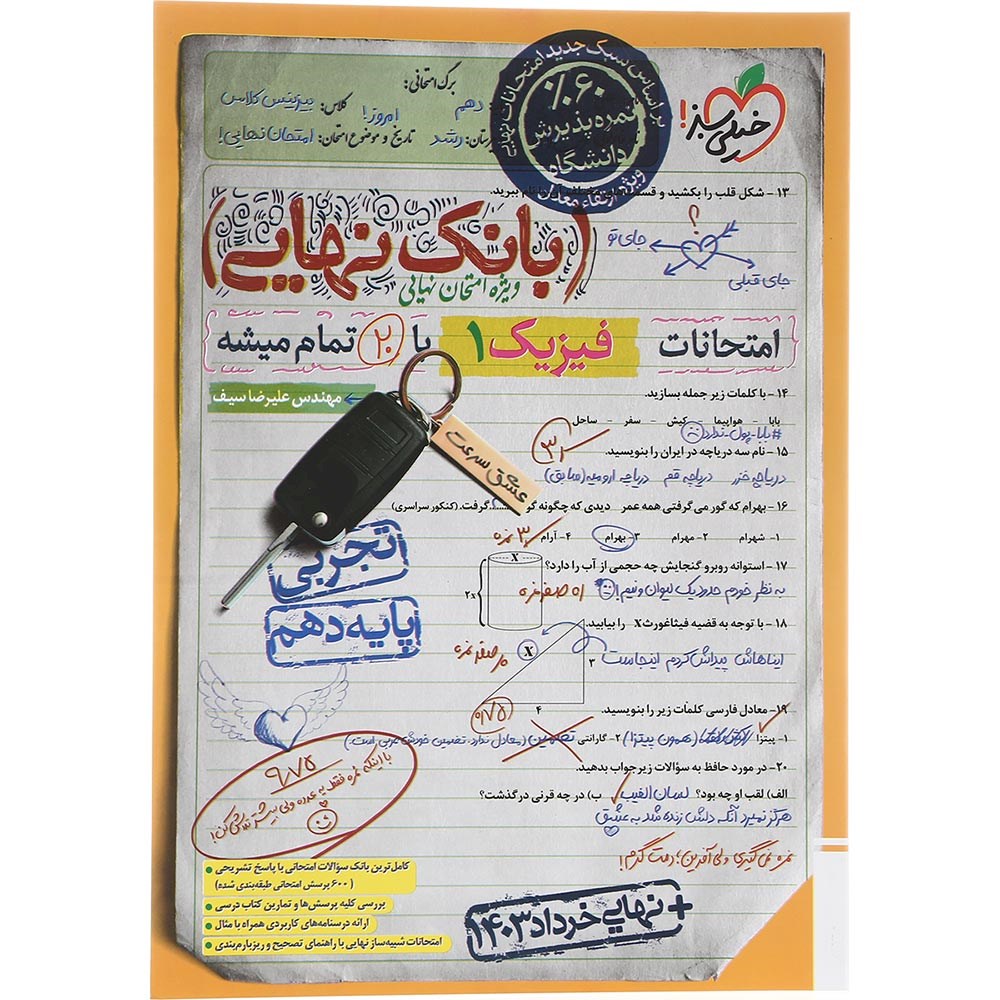 خیلی سبز!
براساس سبک جدید امتحانات نهایی
۶۰٪
نمره پذیرش
دانشگاه
ویژه ارتقاء معدل
برگ امتحانی:
دهم
کلاس: بیزینس کلاس
رشد
تاریخ و موضوع امتحان: امروز! امتحان نهایی!
۱۳ - شکل قلب را بکشید و
نام ببرید.
؟
جای تو
جای قبلی
(بانک نهایی)
ویژه امتحان نهایی
امتحانات فیزیک ۱ با ۲۰ تمام میشه
مهندس علیرضا سیف
۱۴ - با کلمات زیر جمله بسازید.
بابا - هواپیما - کیش - سفر - ساحل
#بابا-پول-ندارد
۱۵ - نام سه دریاچه در ایران را بنویسید.
دریاچه خزر دریاچه قم دریاچه ارومیه (سابق)
عشق سرعت
۱۶ - بهرام که گور می گرفتی همه عمر دیدی که چگونه گور ....... گرفت. (کنکور سراسری)
۱- شهرام ۲- مهرام ۳- بهرام ۴- آرام
۳ نمره
۱۷ - استوانه روبرو گنجایش چه حجمی از آب را دارد؟
x
۲x
به نظر خودم حدود یک لیوان و نیم!
صفر نمره
۱۸ - با توجه به قضیه فیثاغورث x را بیابید.
ایناهاش پیداش کردم اینجاست
X
۳
۴
صفر نمره
تجربی
پایه دهم
۰/۷۵
۱۹ - معادل فارسی کلمات زیر را بنویسید.
۱- پیتزا (همون پیتزا) ۲- گارانتی تضمین (معادل ندارد، تضمین خودش عربی است.)
۲۰ - در مورد حافظ به سؤالات زیر جواب بدهید.
الف) لقب او چه بود؟ لسان الغیب ب) در چه قرنی درگذشت؟
هرگز نمیرد آنکه دلش زنده شد به عشق
نمره نمی گیری ولی آفرین؛ دمت گرم!
۹/۷۵
با اینکه نمره فقط یه عدده ولی بیشتر تلاش کن!
کامل‌ترین بانک سؤالات امتحانی با پاسخ تشریحی
(۶۰۰ پرسش امتحانی طبقه‌بندی شده)
بررسی کلیه پرسش‌ها و تمارین کتاب درسی
ارائه درسنامه‌های کاربردی همراه با مثال
امتحانات شبیه‌ساز نهایی با راهنمای تصحیح و ریزبارم‌بندی
+ نهایی خرداد ۱۴۰۳